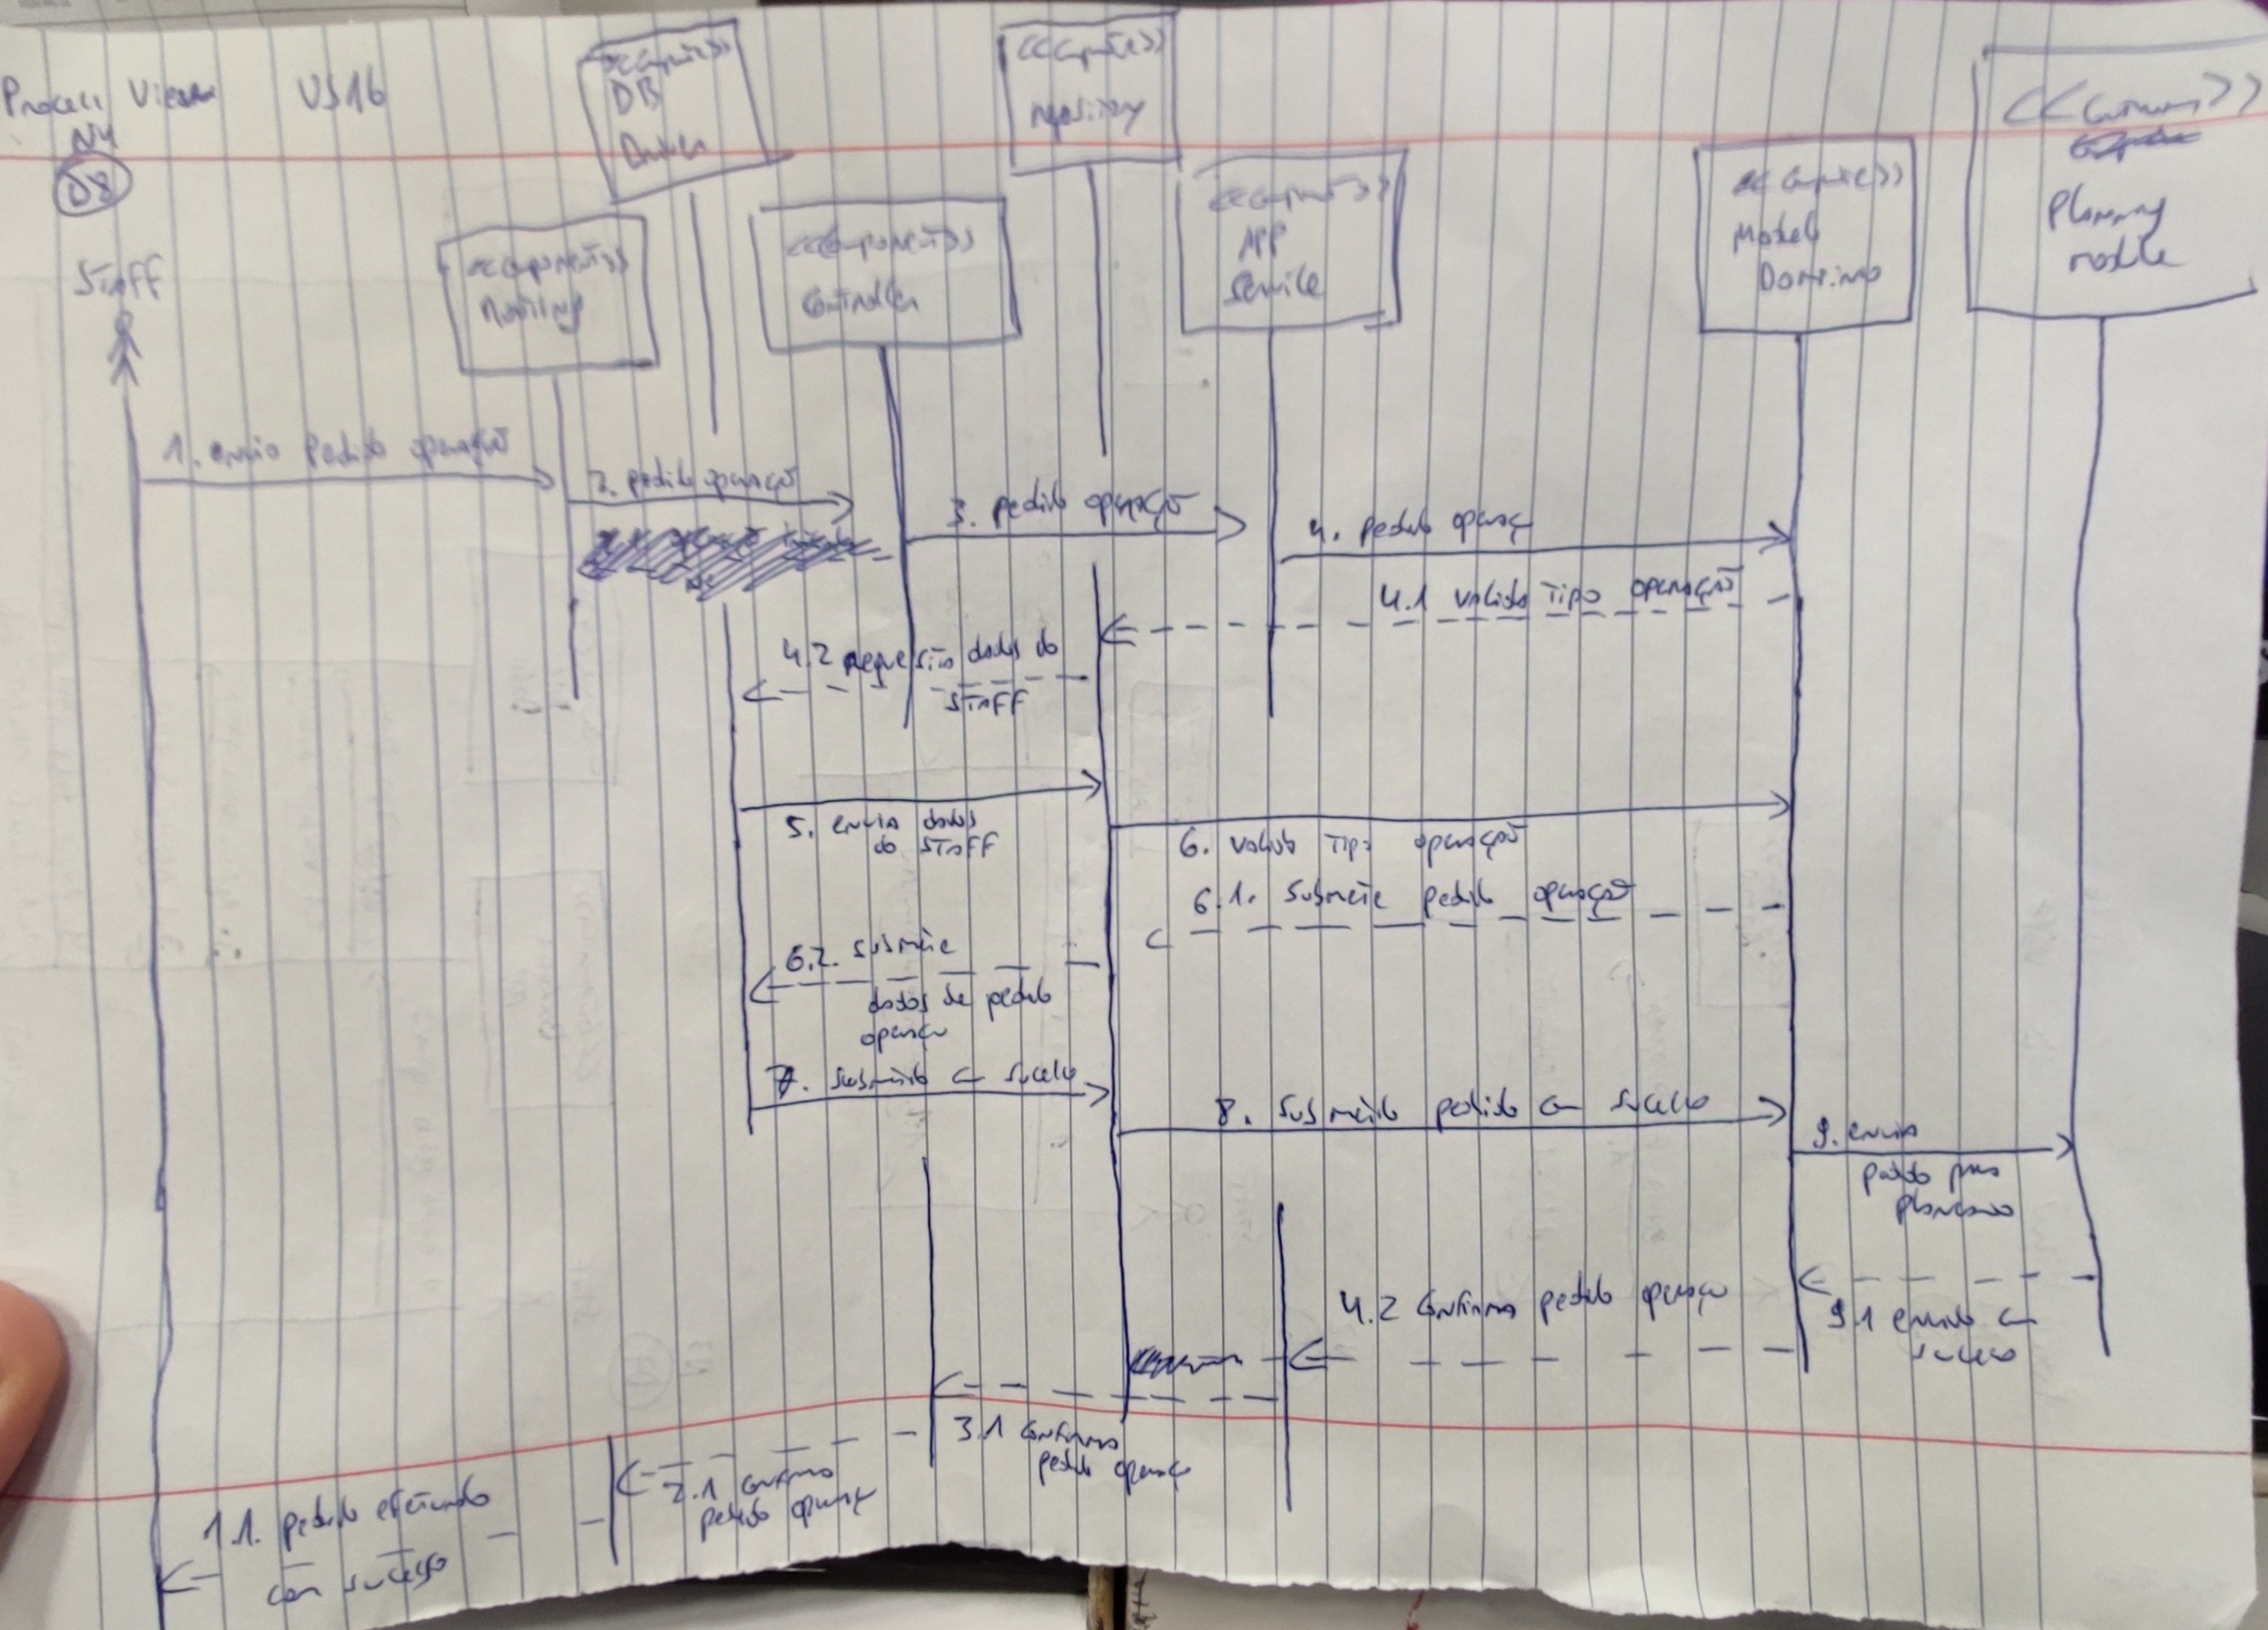 Process View US16
N4
D8
Staff
<<component>>
DB
Driver
<<component>>
repository
<<component>>
Routing
<<component>>
Controller
<<component>>
APP
Service
<<component>>
Modelo
Dominio
Planning
module
1. envio Pedido operação
2. pedido operação
3. pedido operação
4. pedido operaç
4.1 valida Tipo operação
4.2 requesita dados do
STAFF
5. envia dados
do STAFF
6. valida Tipo operação
6.1. Submete pedido operação
6.2. submete
dados de pedido
operaçã
7. submetido c sucesso
8. Submetido pedido com sucesso
9. envia
pedido para
4.2 Confirma pedido operaçã
9.1 enviado c
sucesso
3.1 Confirma
pedido operaç
2.1 confirma
pedido operaç
1.1. pedido efetuado
com sucesso